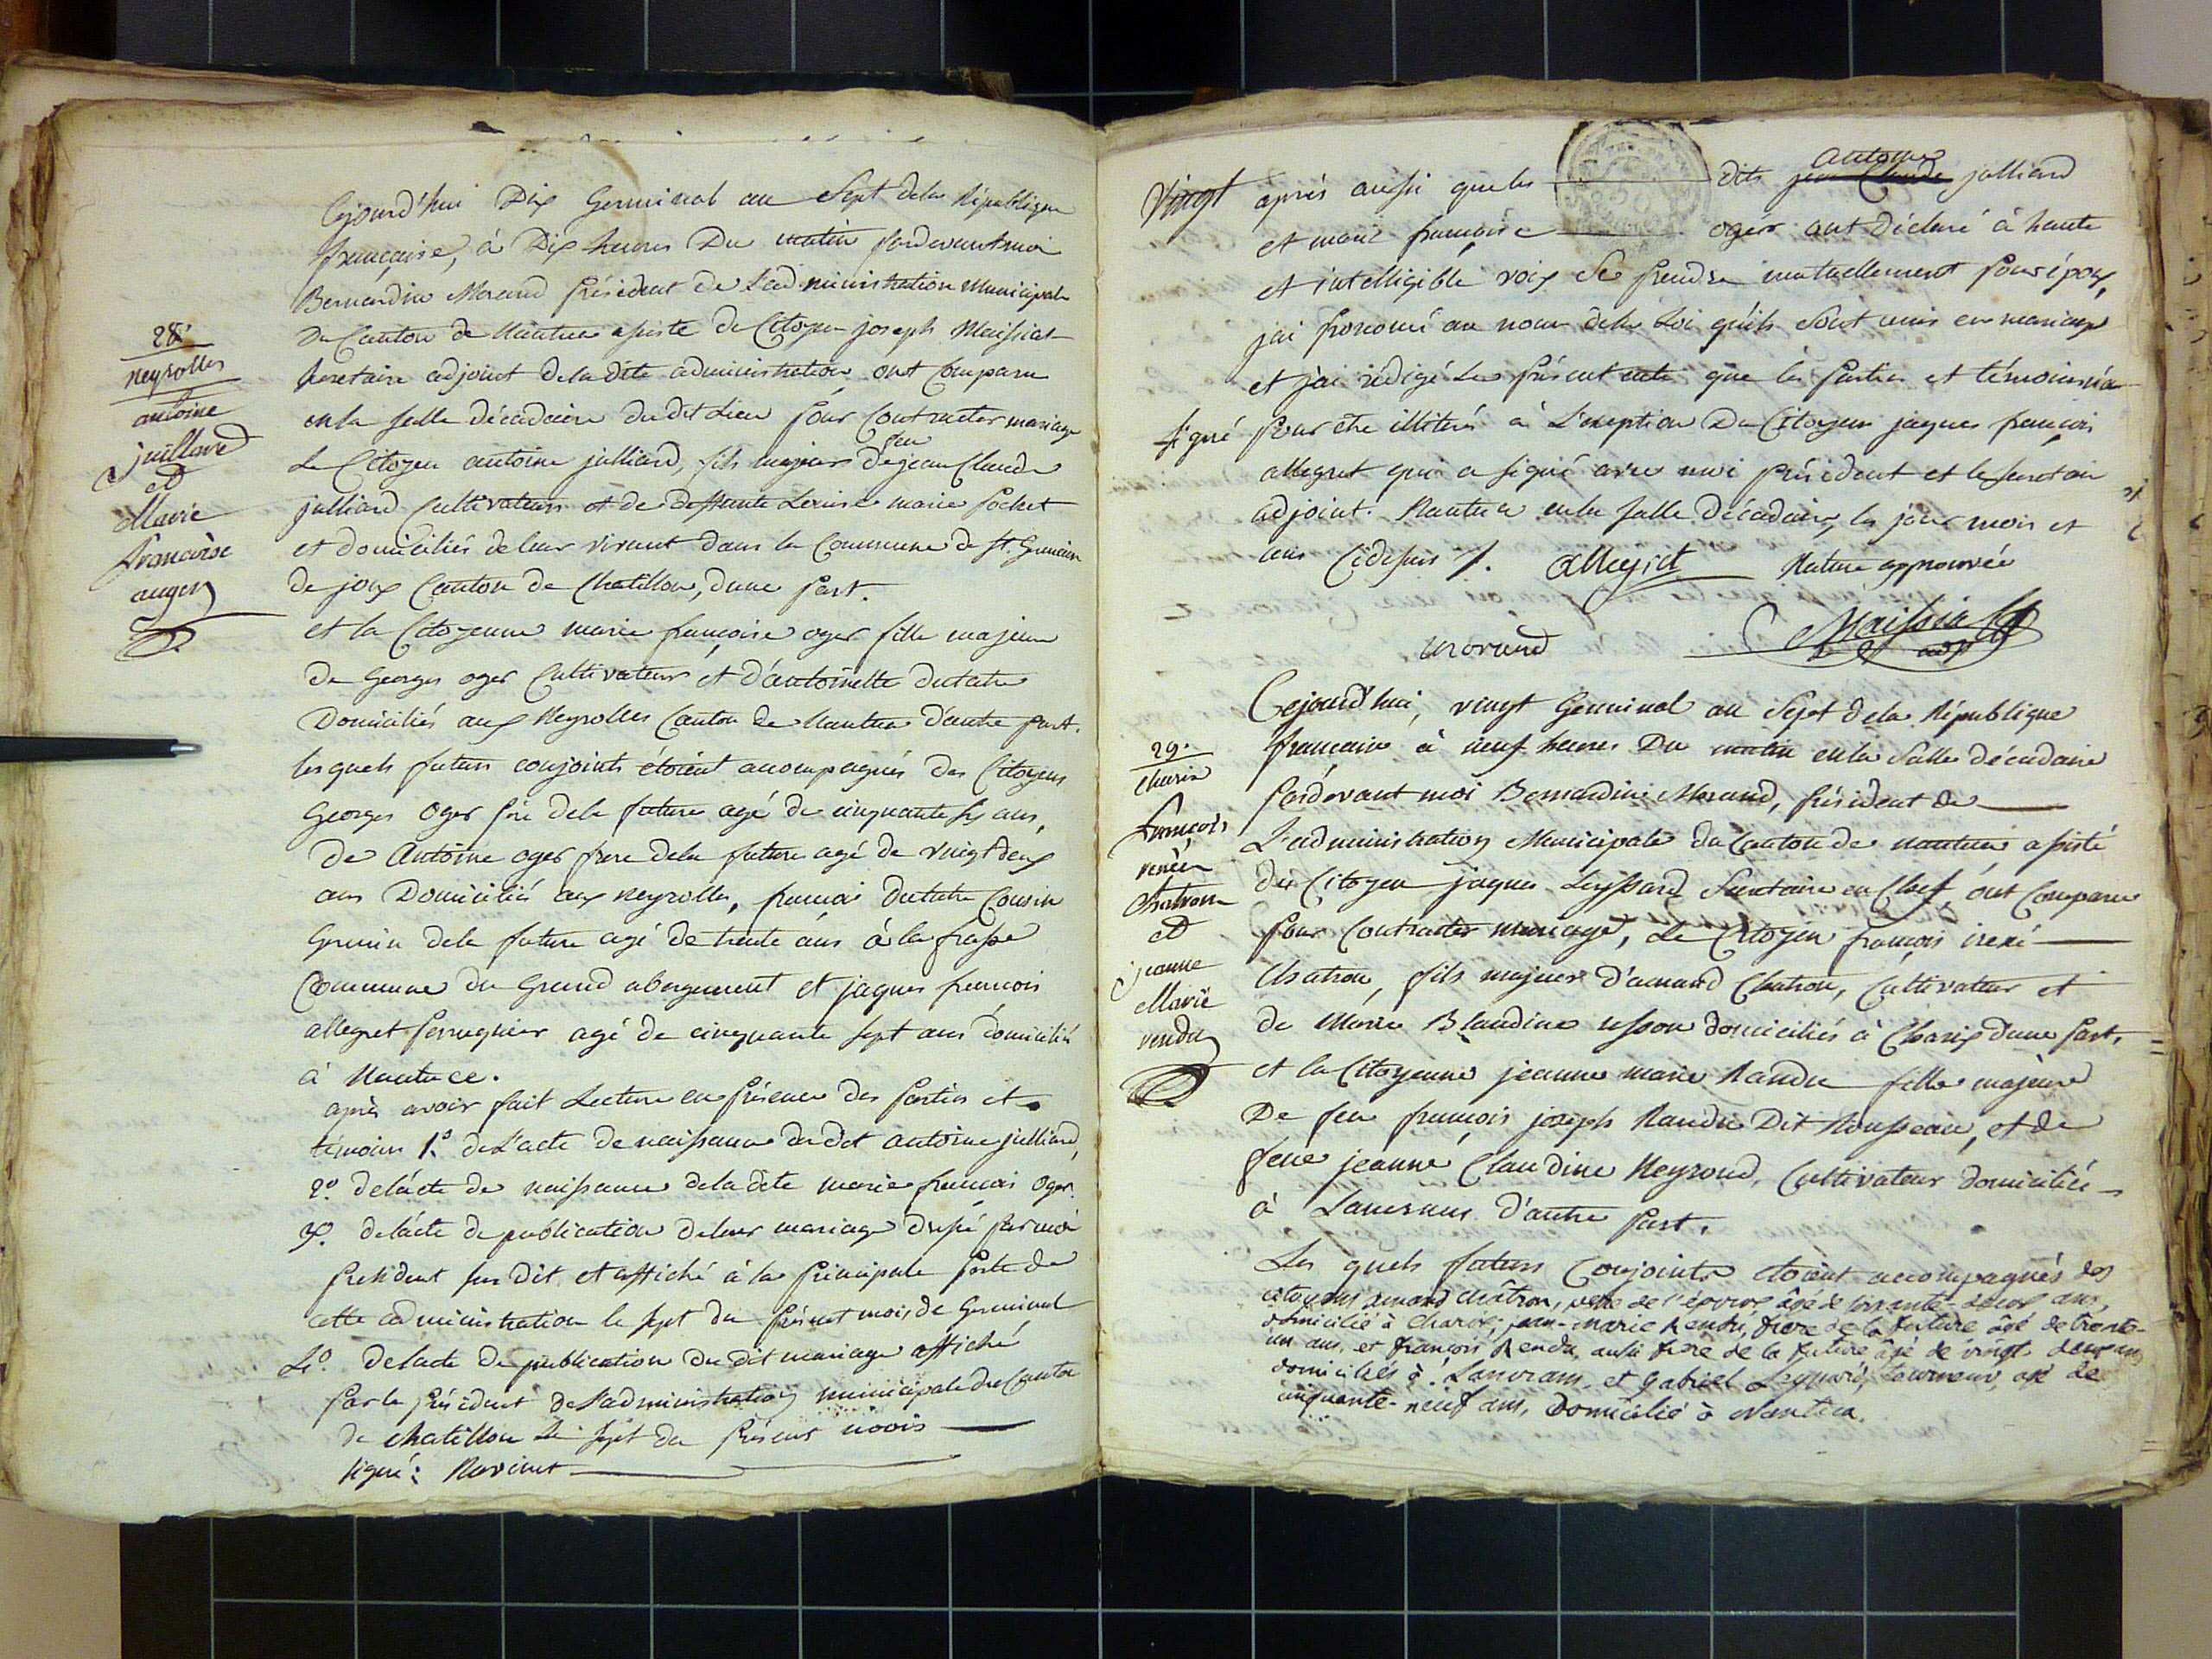 28.
neyrolles
antoine
juillard
et
Marie
francoise
auger
Cejourd'hui Dix Germinal an Sept dela République
française, à Dix heures Du matin pardevant moi
Bernardin Morand président de L'administration Municipale
Du Canton de Nantua assisté du Citoyen joseph Maissiat
secretaire adjoint de la dite administration ont Comparu
en la salle décadaire du dit Lieu pour Contracter mariage
Le Citoyen antoine julliard, fils majeur de feu jean Claude
julliard Cultivateur et de deffunte Louise marie Pochet
et domiciliés de leur vivant dans la Commune de St. Germain
de joux Canton de Chatillon, d'une part.
et la Citoyenne marie françoise oger fille majeure
de Georges oger Cultivateur et d'antoinette dutatre
Domiciliés aux Neyrolles Canton de Nantua d'autre part.
lesquels futurs conjoints étoient acompagnés des Citoyens
Georges Oger père dela future agé de cinquante six ans,
de Antoine oger frere dela future agé de vingt deux
ans Domiciliés aux neyrolles, françois dutatre Cousin
Germin dela future agé de trente ans à la frasse
Commune du Grand abergement et jaques françois
allegret perruquier agé de cinquante sept ans domicilié
à Nantua.
après avoir fait Lecture en présence des parties et
témoins 1.° de L'acte de naissance du dit antoine julliard,
2.° de l'acte de naissance dela dite marie françois Oger.
3.° de l'acte de publication deleur mariage dressé par moi
président sus dit et affiché à la principale porte de
cette administration le sept du présent mois de Germinal
4.° de l'acte de publication du dit mariage affiché
par le président de l'administration municipale du Canton
de chatillon Le sept du présent mois
signé: Ravinet
Vingt
après aussi que les dits antoine jean Claude julliard
et marie françoise oger ont déclaré à haute
et intelligible voix se prendre mutuellement pour époux,
jai prononcé au nom dela Loi qu'ils sont unis en mariage
et j'ai rédigé Le présent acte que les parties et témoins n'ont
signé pour être illitérés à L'exeption Du Citoyen jaques françois
allegret qui a signé avec moi président et le secretaire
adjoint. Nantua en la salle décadaire, les jour mois et
ans Cidessus /. Allegret Rature approuvée
morand Maissiat
adj.
29.
Charix
François
renée
Chatron
et
jeanne
Marie
rendu
Cejourd'hui, vingt Germinal an Sept dela République
française à neuf heures Du matin en la Salle décadaire
pardevant moi Bernardin Morand, président de
L'administration Municipale du Canton de nantua assisté
du Citoyen jaques Leyssard Secretaire en Chef, ont Comparu
pour Contracter mariage, Le Citoyen françois irené
Chatron, fils majeur d'amand Chatron, Cultivateur et
de Marie Blandine usson domiciliés à Charix d'une part.
et la Citoyenne jeanne marie Randu fille majeure
De feu françois joseph Randu Dit Rousseau, et de
feue jeanne Claudine Neyroud, Cultivateur domiciliée
à Lancrans d'autre part.
Les quels futurs Conjoints étoient accompagnés des
citoyens amand châtron, père de l'époux âgé de soixante-deux ans,
domicilié à Charix; jean-marie Rendu, frere de la future âgé de trente-
un ans, et françois Rendu, aussi frere de la future âgé de vingt deux ans
domiciliés à Lancrans, et gabriel Leyssard, tourneur, agé de
cinquante-neuf ans, domicilié à Nantua.